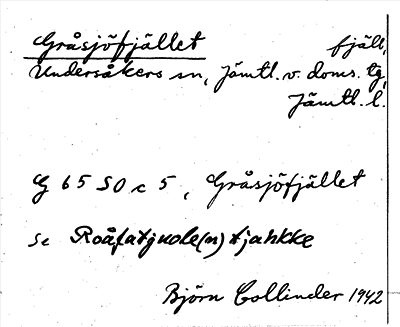 Gråsjöfjället fjäll,
Undersåkers sn, Jämtl. v. doms. tg,
Jämtl. l.
G 65 SO c 5, Gråsjöfjället
se Roåfatjuole(n)tjahkke
Björn Collinder 1942